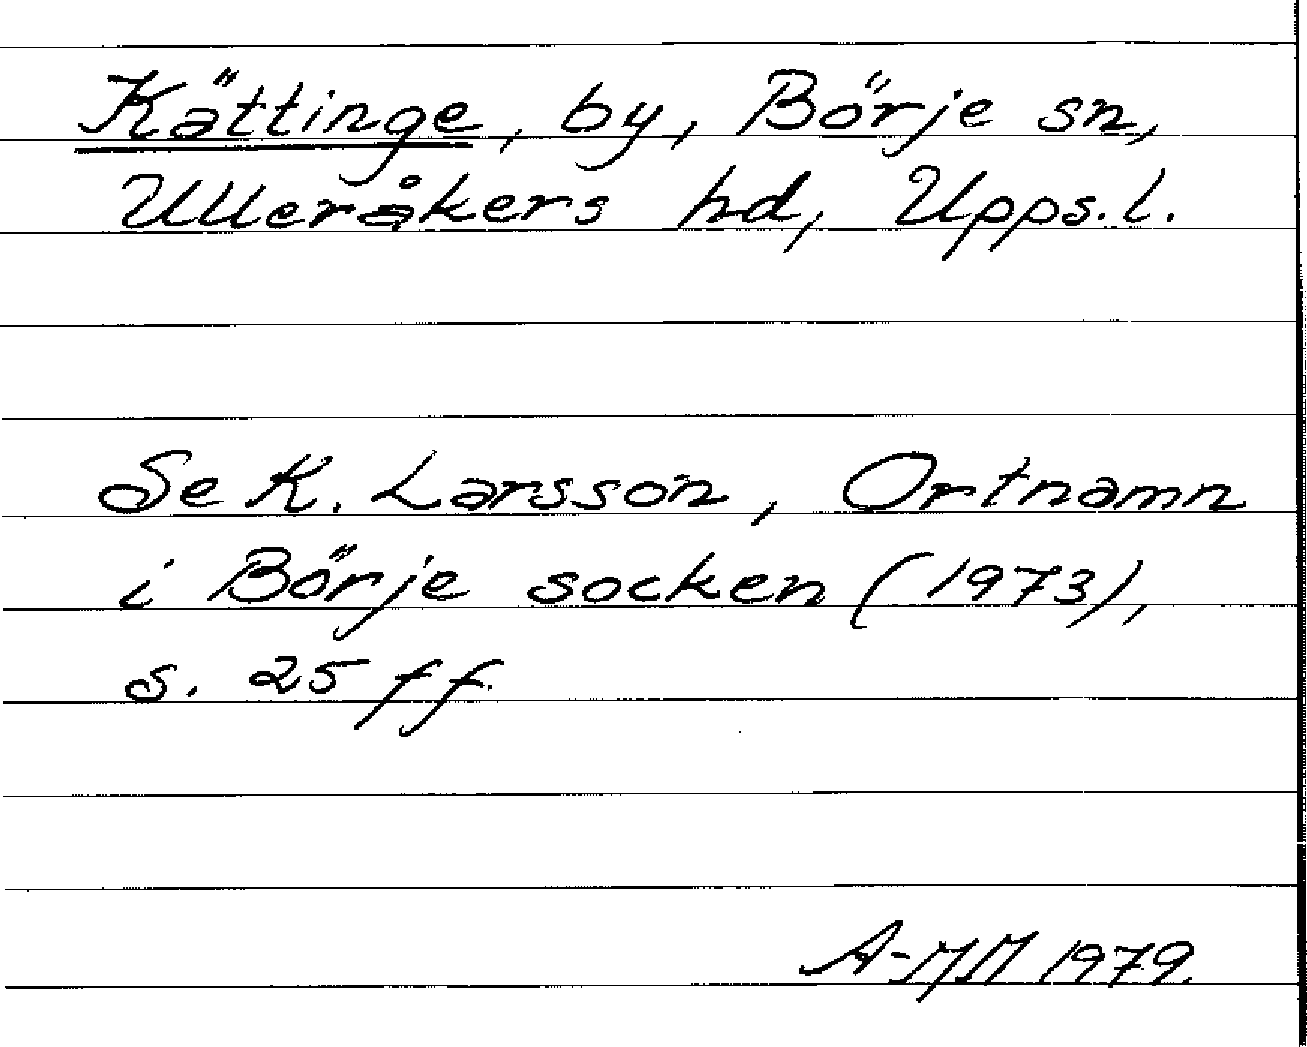 Kättinge, by, Börje sn,
Ulleråkers hd, Upps.l.
Se K. Larsson, Ortnamn
i Börje socken (1973),
s. 25 ff.
A-MM 1979.